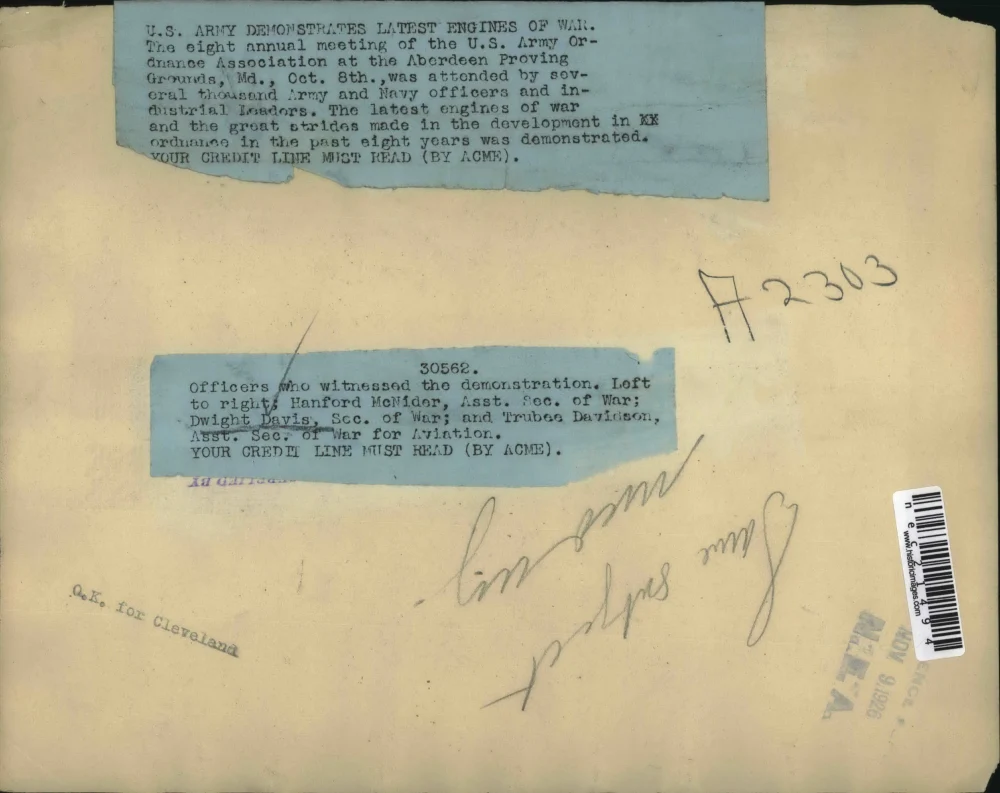 U.S. ARMY DEMONSTRATES LATEST ENGINES OF WAR.
The eight annual meeting of the U.S. Army Or-
dnance Association at the Aberdeen Proving
Grounds, Md., Oct. 8th.,was attended by sev-
eral thousand Army and Navy officers and in-
dustrial Leaders. The latest engines of war
and the great strides made in the development in XX
ordnance in the past eight years was demonstrated.
YOUR CREDIT LINE MUST READ (BY ACME).
A 2303
30562.
Officers who witnessed the demonstration. Left
to right; Hanford McNider, Asst. Sec. of War;
Dwight Davis, Sec. of War; and Trubee Davidson,
Asst. Sec. of War for Aviation.
YOUR CREDIT LINE MUST READ (BY ACME).
Same subject
O.K. for Cleveland
nec21494
www.historicimages.com
NOV 9 1926
N.E.A.